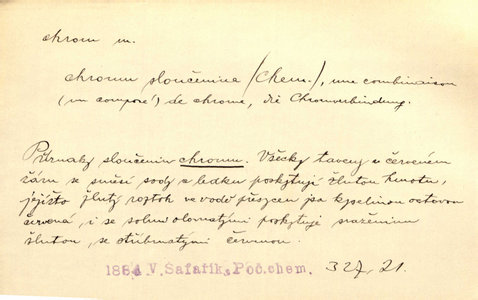 chrom m.
chromu sloučenina (Chem.), une combinaison
(un composé) de chrome, die Chromverbindung.
Příznaky sloučenin chromu. Všecky taveny v červeném
žáru se směsí sody a ledku poskytují žlutou hmotu,
jejížto žlutý roztok ve vodě přesycen jsa kyselinou octovou
červená, i se solmi olovnatými poskytuje sraženinu
žlutou, se stříbrnatými červenou.
1884 V. Šafařík, Poč. chem. 327, 21.